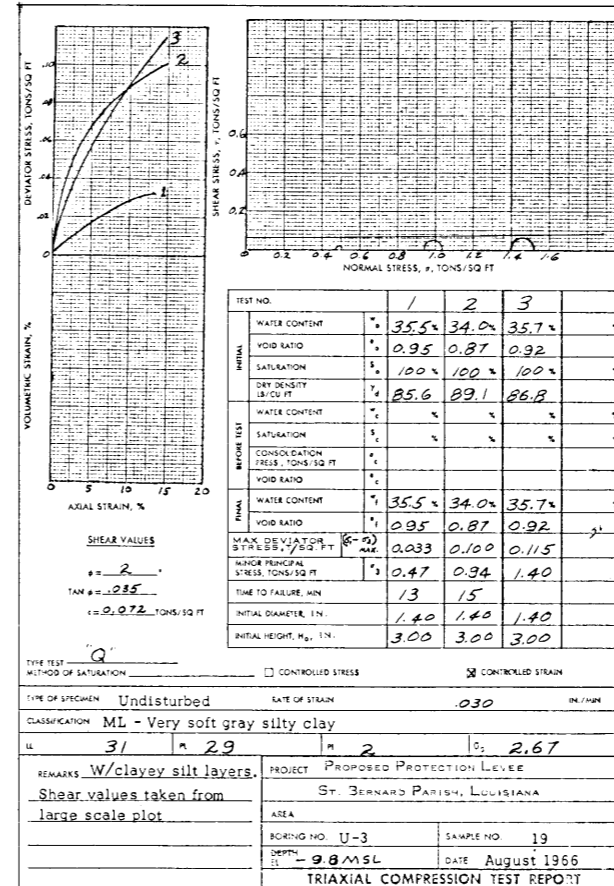 DEVIATOR STRESS, TONS/SQ FT
.10
.08
.06
.04
.02
0
3
2
1
VOLUMETRIC STRAIN, %
0 5 10 15 20
AXIAL STRAIN, %
SHEAR STRESS, τ, TONS/SQ FT
0.6
0.4
0.2
0 0.2 0.4 0.6 0.8 1.0 1.2 1.4 1.6
NORMAL STRESS, σ, TONS/SQ FT
SHEAR VALUES
φ = 2 °
TAN φ = .035
c = 0.072 TONS/SQ FT
TEST NO. 1 2 3
INITIAL
WATER CONTENT w₀ 35.5 % 34.0 % 35.7 %
VOID RATIO e₀ 0.95 0.87 0.92
SATURATION S₀ 100 % 100 % 100 %
DRY DENSITY LB/CU FT γd 85.6 89.1 86.8
BEFORE TEST
WATER CONTENT wc % % %
SATURATION Sc % % %
CONSOLIDATION PRESS., TONS/SQ FT σc
VOID RATIO ec
FINAL
WATER CONTENT wf 35.5 % 34.0 % 35.7 %
VOID RATIO ef 0.95 0.87 0.92
MAX DEVIATOR STRESS, T/SQ. FT (σ₁-σ₃) MAX. 0.033 0.100 0.115
MINOR PRINCIPAL STRESS, TONS/SQ FT σ₃ 0.47 0.94 1.40
TIME TO FAILURE, MIN 13 15
INITIAL DIAMETER, IN. 1.40 1.40 1.40
INITIAL HEIGHT, H₀, IN. 3.00 3.00 3.00
TYPE TEST "Q"
METHOD OF SATURATION
CONTROLLED STRESS
CONTROLLED STRAIN
TYPE OF SPECIMEN Undisturbed RATE OF STRAIN .030 IN./MIN
CLASSIFICATION ML - Very soft gray silty clay
LL 31 PL 29 PI 2 Gs 2.67
REMARKS W/clayey silt layers.
Shear values taken from
large scale plot
PROJECT PROPOSED PROTECTION LEVEE
ST. BERNARD PARISH, LOUISIANA
AREA
BORING NO. U-3 SAMPLE NO. 19
DEPTH EL -9.8 MSL DATE August 1966
TRIAXIAL COMPRESSION TEST REPORT